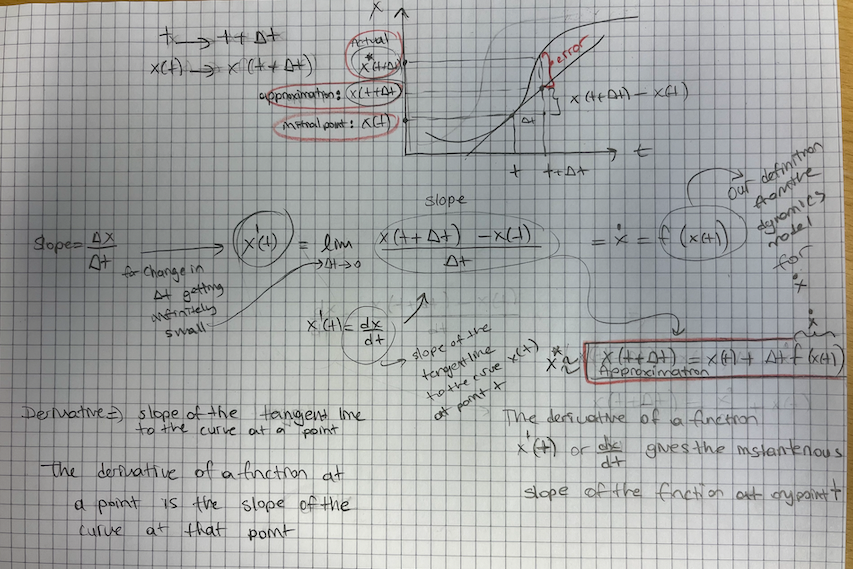 t → t + Δt
x(t) → x (t + Δt)
x
Actual
x*(t+Δt)
approximation: x(t+Δt)
initial point: x(t)
error
Δt
x(t+Δt) - x(t)
t
t+Δt
t
our definition
from the
dynamics
model
for
ẋ
slope
slope = Δx/Δt
for change in
Δt getting
infinitely
small
x'(t) = lim Δt→0 (x(t+Δt) - x(t))/Δt = ẋ = f(x(t))
x'(t) = dx/dt
slope of the
tangent line
to the curve x(t)
at point t
ẋ
x* ≈ x(t+Δt) = x(t) + Δt f(x(t))
Approximation
Derivative ⇒ slope of the tangent line
to the curve at a point
The derivative of a function at
a point is the slope of the
curve at that point
The derivative of a function
x'(t) or dx/dt gives the instantenous
slope of the fnction at any point t